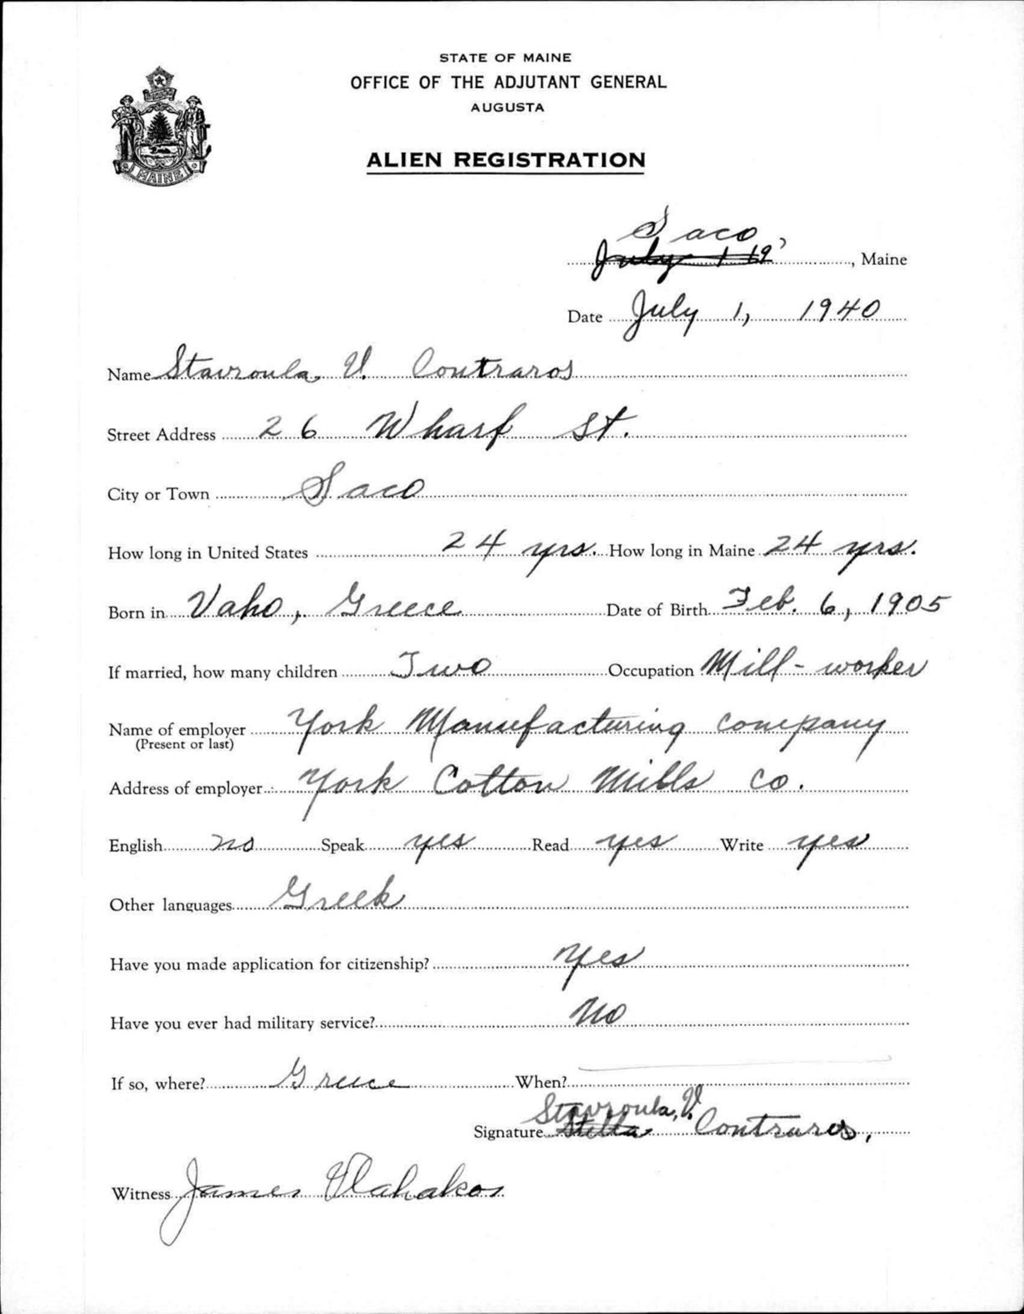 STATE OF MAINE
OFFICE OF THE ADJUTANT GENERAL
AUGUSTA
ALIEN REGISTRATION
MAINE
Saco
July 1 19, Maine
Date July 1, 1940
Name Stavroula V. Contraros
Street Address 26 Wharf St.
City or Town Saco
How long in United States 24 yrs. How long in Maine 24 yrs.
Born in Vaho, Greece Date of Birth Feb. 6, 1905
If married, how many children Two Occupation Mill-worker
Name of employer York Manufacturing Company
(Present or last)
Address of employer York Cotton Mills Co.
English no Speak yes Read yes Write yes
Other languages Greek
Have you made application for citizenship? Yes
Have you ever had military service? No
If so, where? Greece When?
Stavroula, V.
Signature Stella Contraros,
Witness James Vlahakos